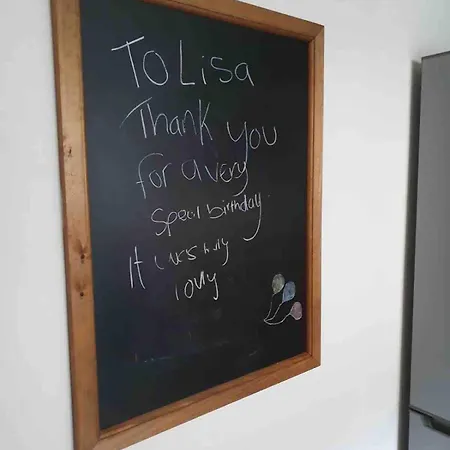 To Lisa
Thank you
for a very
special birthday.
It was truly
lovly